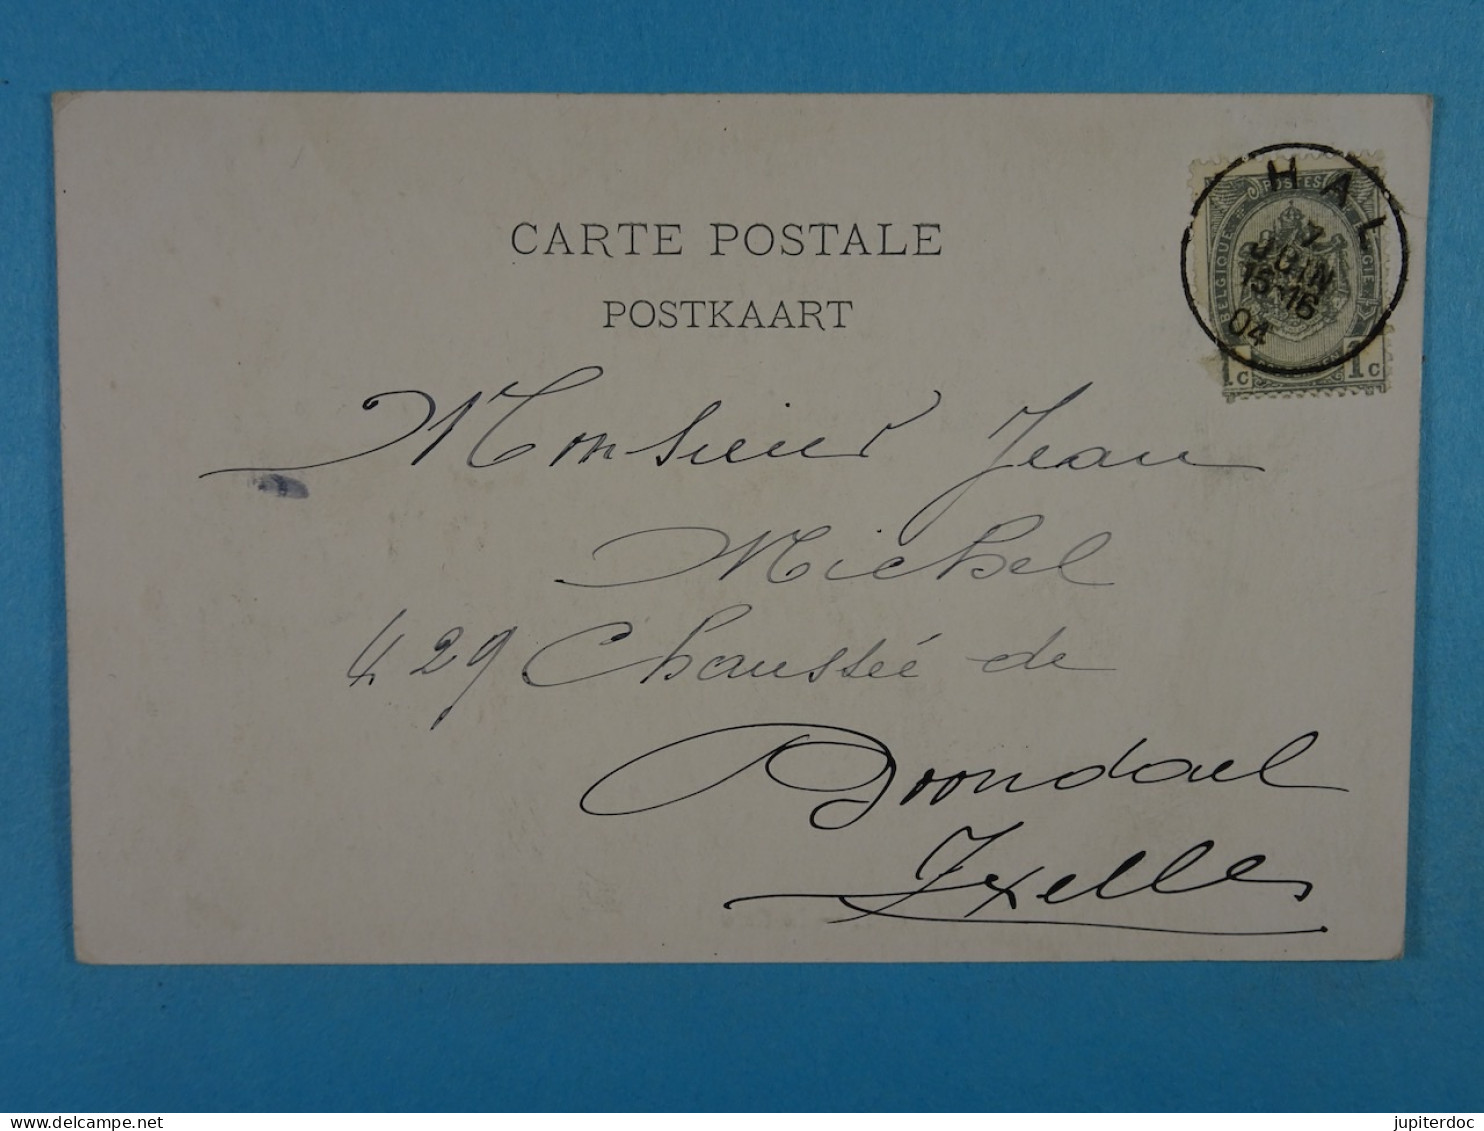 CARTE POSTALE
POSTKAART
HAL
7
JUIN
15-16
04
POSTES
BELGIQUE
1c 1c
Monsieur Jean
Michel
429 Chaussée de
Boondael
Ixelles
delcampe.net
jupiterdoc